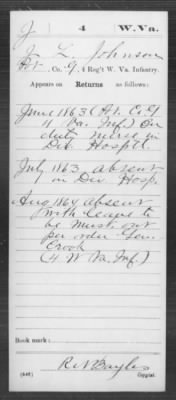 J 4 W. Va.
J L Johnson
Co. G, 4 Reg't W. Va. Infantry.
Appears on Returns as follows:
June 1863 (At. Co G
4 Va. Inf) On
duty nurse in
Div. Hosptl.
July 1863 absent
in Div. Hosp.
Aug 1864 absent
with leave to
be must. out
per order Gen.
Crook
(4 W Va. Inf)
Book mark:
(546) Copyist.